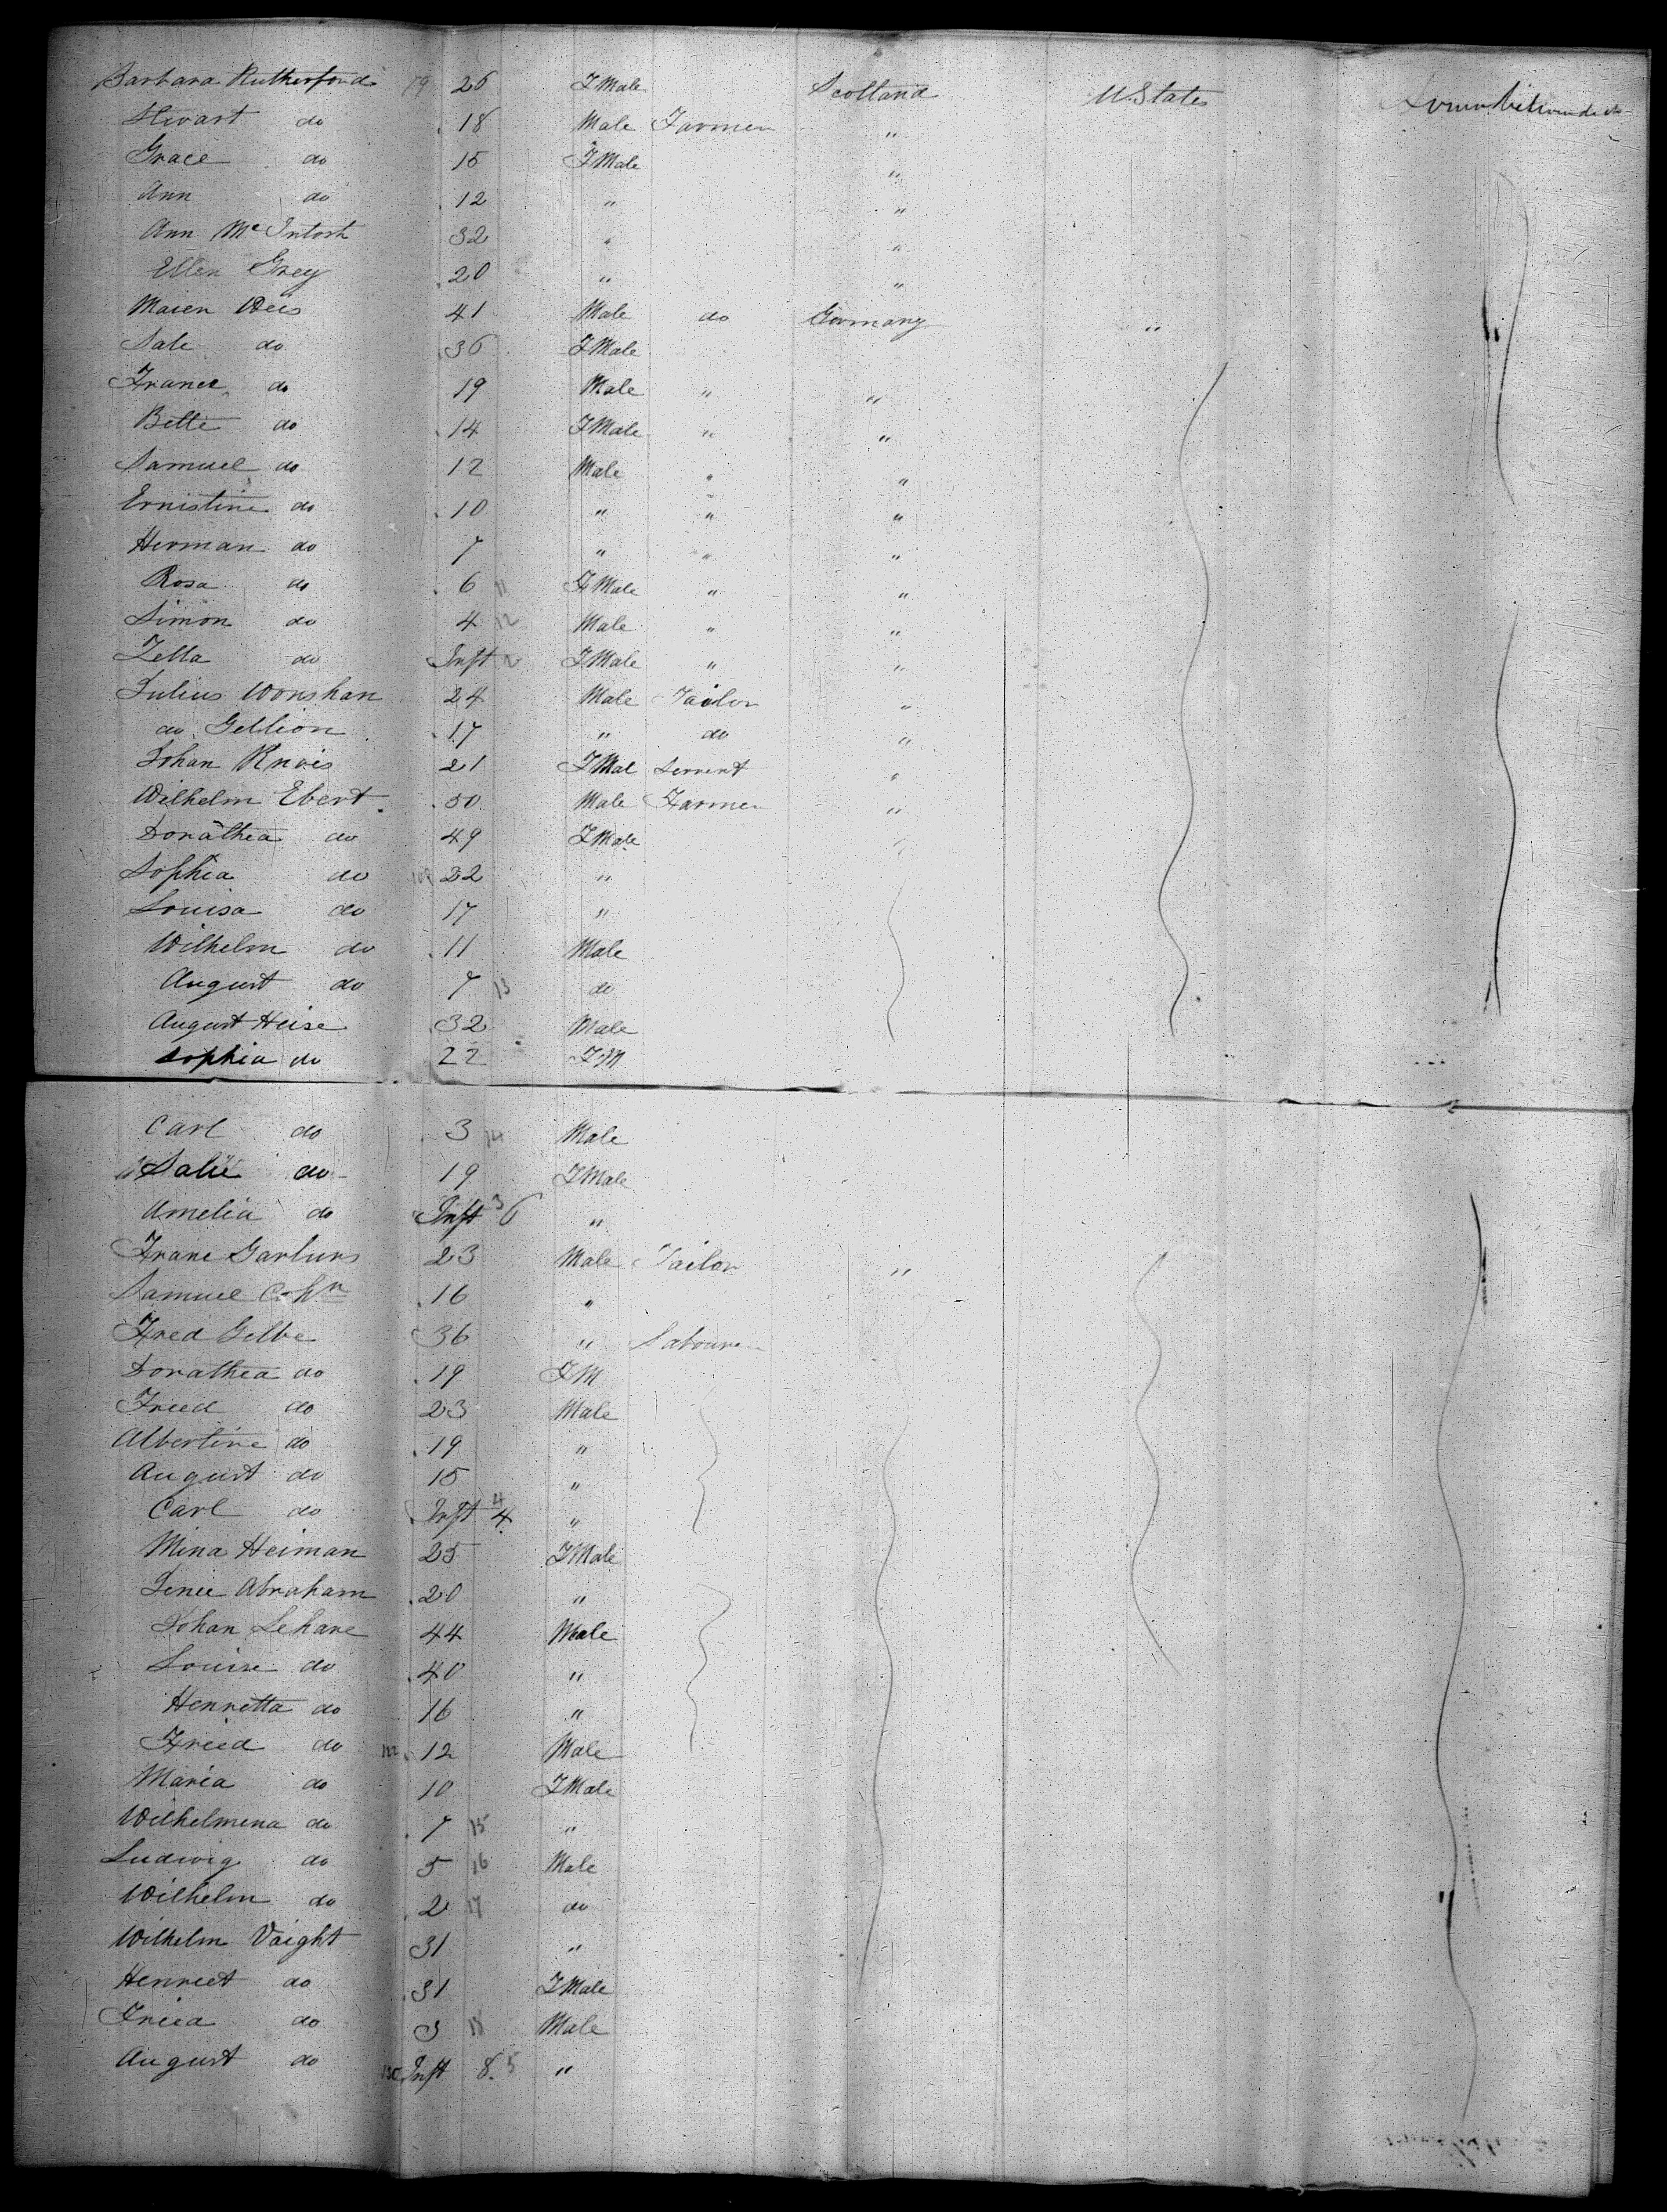 Barbara Rutherford 79 26 FMale Scotland U. States
Stewart do 18 Male Farmer "
Grace do 15 FMale "
Ann do 12 " "
Ann McIntosh 32 " "
Ellen Grey 20 " "
Maien Weis 41 Male do Germany "
Sale do 36 FMale
Franee do 19 Male " "
Bette do 14 FMale " "
Samuel do 12 Male " "
Ernistine do 10 " " "
Herman do 7 " " "
Rosa do 6 11 FMale " "
Simon do 4 12 Male " "
Zella do Inft 2 FMale " "
Julius Wonshan 24 Male Tailor "
do Gellion 17 " do "
Johan Knois 21 FMal Servent "
Wilhelm Ebert 50 Male Farmer "
Dorathea do 49 FMale "
Sophia do 22 "
Louisa do 17 "
Wilhelm do 11 Male
August do 7 13 do
August Heise 32 Male
Sophia do 22 FM
Carl do 3 14 Male
Salie do 19 FMale
Amelia do Inft 3 6 "
Frane Garluns 23 Male Tailor "
Samuel Cohn 16 "
Fred Gelbe 36 " Labourer
Dorathea do 19 FM
Fried do 23 Male
Albertine do 19 "
August do 15 "
Carl do Inft 4 4 "
Mina Heiman 25 FMale
Lenie Abraham 20 "
Johan Lehane 44 Male
Louise do 40 "
Henretta do 16 "
Fried do 122 12 Male
Maria do 10 FMale
Wilhelmena do 7 15 "
Ludwig do 5 16 Male
Wilhelm do 2 17 do
Wilhelm Vaight 31 "
Henriet do 31 FMale
Fried do 3 18 Male
August do 130 Inft 8. 5 "